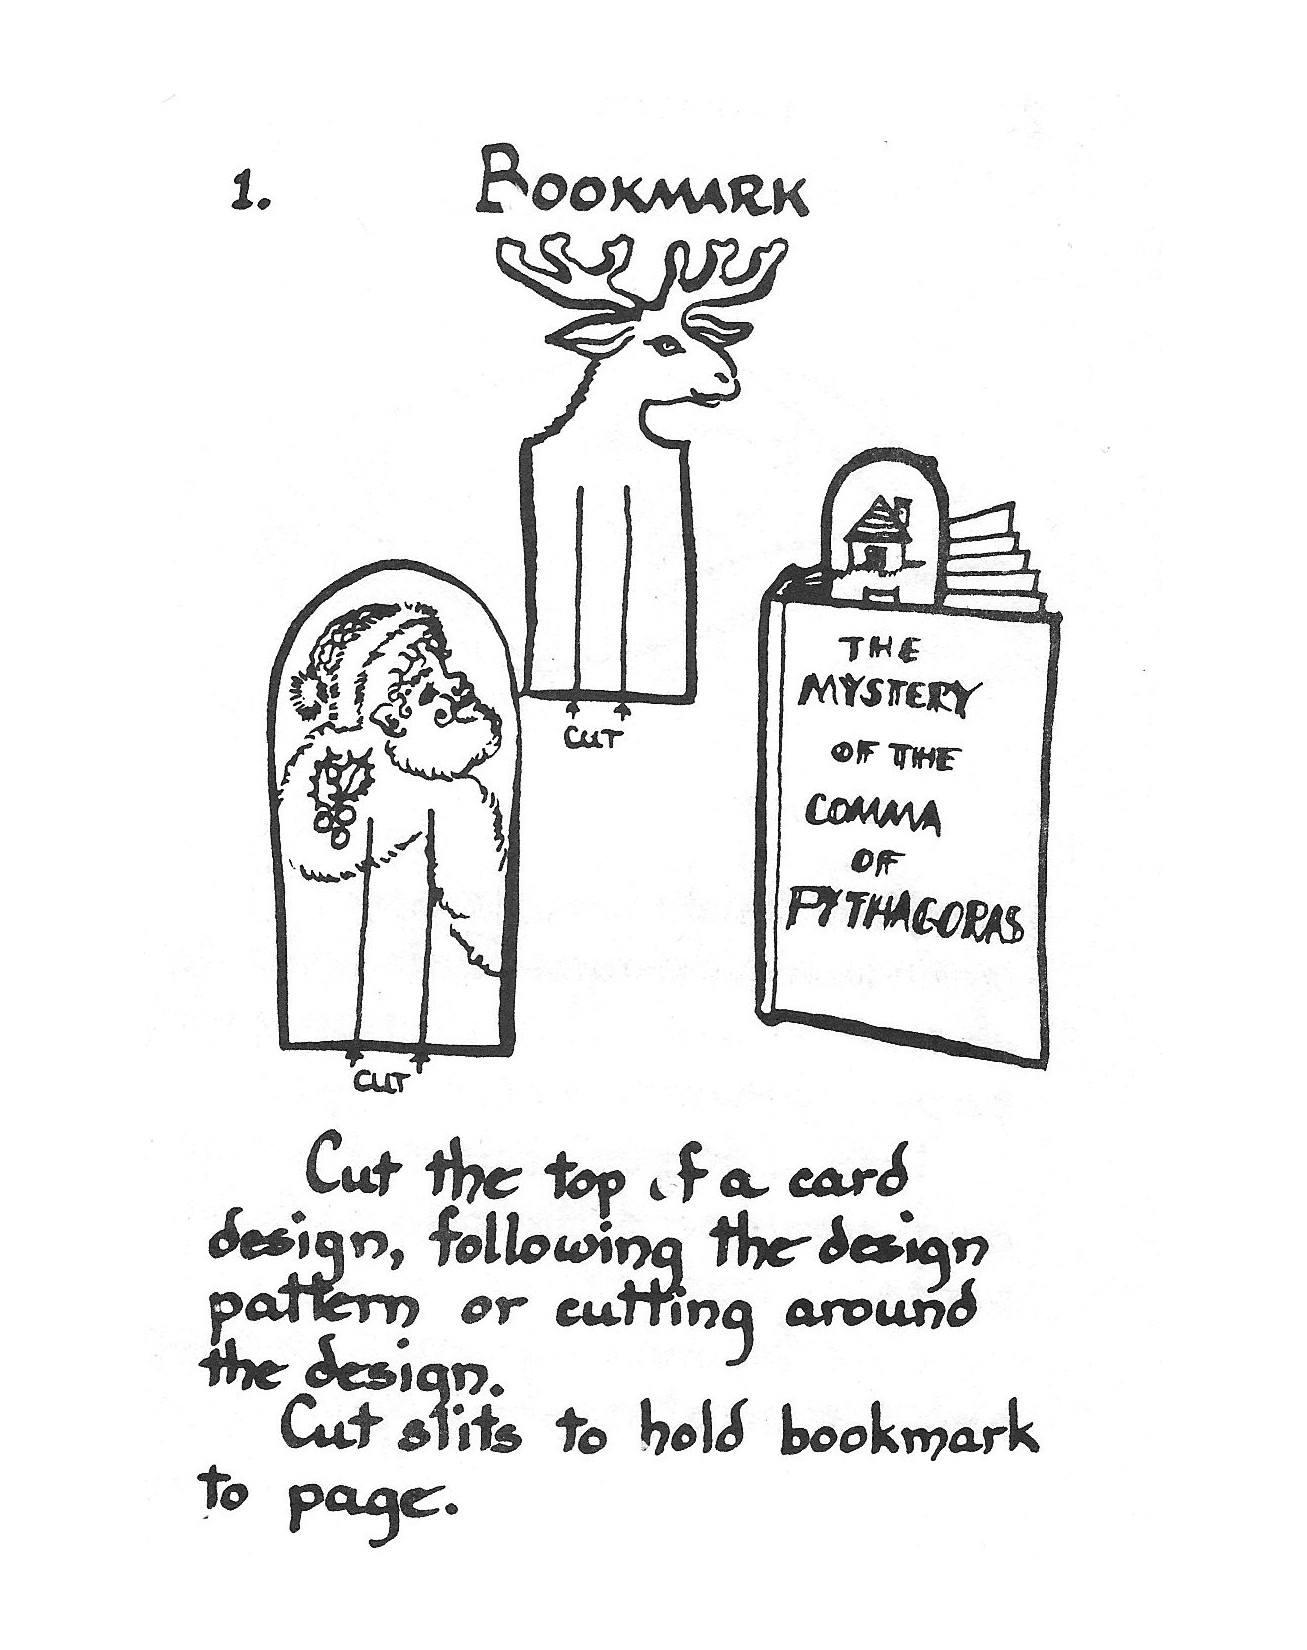 1.
BOOKMARK
CUT
THE
MYSTERY
OF THE
COMMA
OF
PYTHAGORAS
CUT
Cut the top of a card
design, following the design
pattern or cutting around
the design.
Cut slits to hold bookmark
to page.